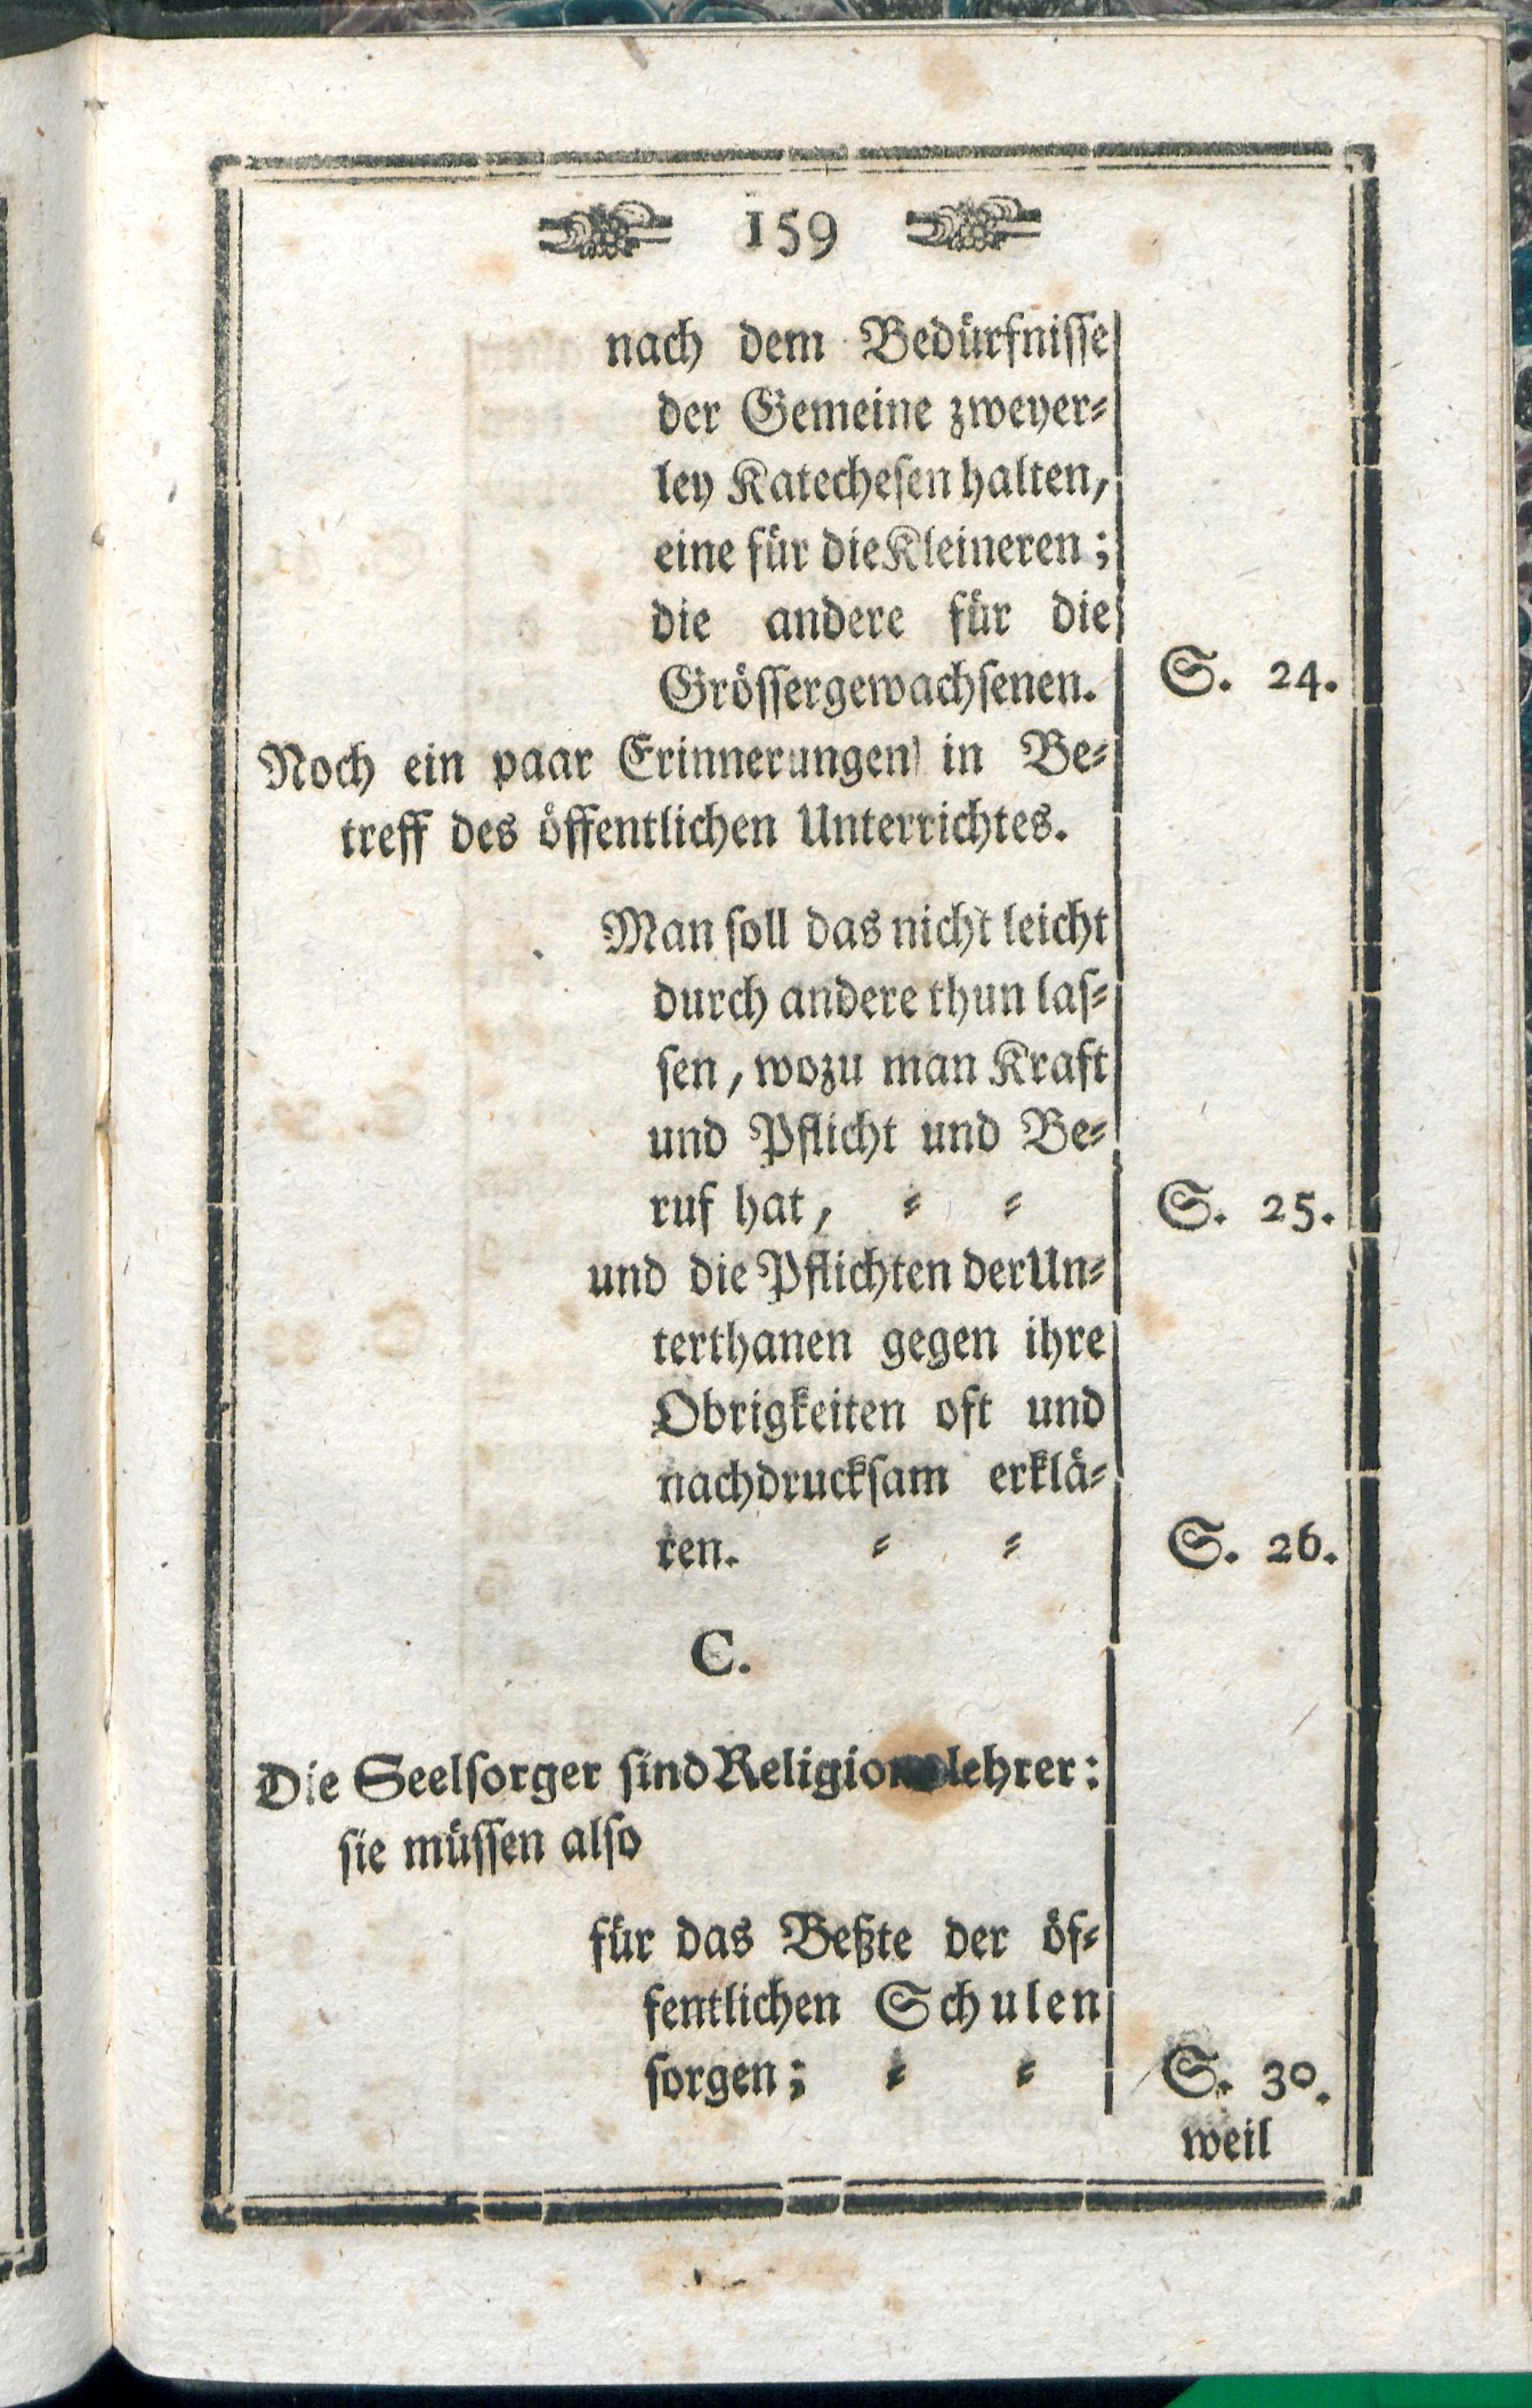 159
nach dem Bedürfnisse
der Gemeine zweyer⸗
ley Katechesen halten,
eine für die Kleineren;
die andere für die
Grössergewachsenen. S. 24.
Noch ein paar Erinnerungen in Be⸗
treff des öffentlichen Unterrichtes.
Man soll das nicht leicht
durch andere thun las⸗
sen, wozu man Kraft
und Pflicht und Be⸗
ruf hat, ⸗ ⸗ S. 25.
und die Pflichten der Un⸗
terthanen gegen ihre
Obrigkeiten oft und
nachdrucksam erklä⸗
ren. ⸗ ⸗ S. 26.
C.
Die Seelsorger sind Religionslehrer:
sie müssen also
für das Beßte der öf⸗
fentlichen Schulen
sorgen; ⸗ ⸗ S. 30.
weil